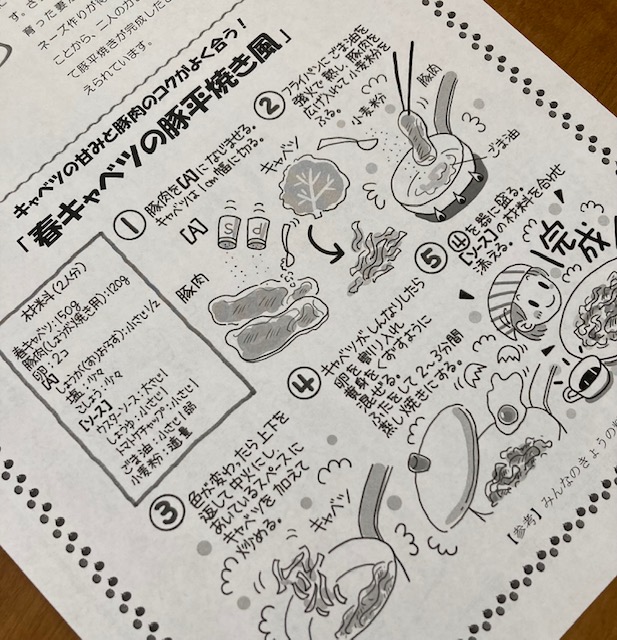 育った妻が
ネーズ作りが
ことから、二人の力
て豚平焼きが完成した
えられています。
キャベツの甘みと豚肉のコクがよく合う！
「春キャベツの豚平焼き風」
材料(2人分)
春キャベツ:150g
豚肉(しょうが焼き用):120g
卵:2コ
[A]
しょうが(すりおろす):小さじ1/2
塩:少々
こしょう:少々
[ソース]
ウスターソース:大さじ1
しょうゆ:小さじ1
トマトケチャップ:小さじ1
ごま油:小さじ1弱
小麦粉:適量
①
豚肉を[A]になじませる。
キャベツは1cm幅に切る。
[A]
キャベツ
豚肉
②
フライパンにごま油を
強火で熱し、豚肉を
広げ入れて小麦粉を
ふる。
小麦粉
豚肉
ごま油
③
色が変わったら上下を
返して中火にし、
あいているスペースに
キャベツを加えて
炒める。
キャベツ
④
キャベツがしんなりしたら
卵を割り入れ
黄身をくずすように
混ぜる。
ふたをして2~3分間
蒸し焼きにする。
⑤
④を器に盛る。
[ソース]の材料を合わせ
添える。
完成
【参考】みんなのきょうの料